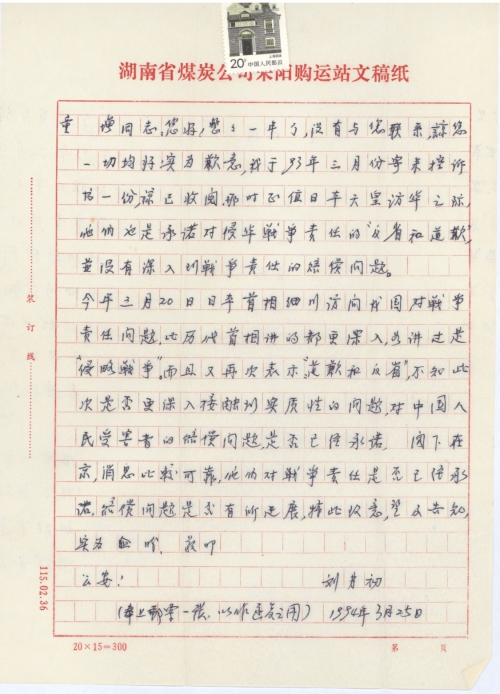 20分 中国人民邮政
湖南省煤炭公司耒阳购运站文稿纸
童 增同志,您好,整整一年了,没有与您联系,谅您
一切均好实为歉意,我于93年三月份寄来控诉
书一份,谅已收阅,那时正值日本天皇访华之际,
他们也是承诺对侵华戦争责任的"反省和道歉",
並没有深入到戦争责任的赔偿问题。
今年三月20日日本首相细川访问我国对戦争
责任问题,比历代首相讲的都更深入,主讲过是
"侵略戦争",而且又再次表示"道歉和反省",不知此
次是否更深入接触到实质性的问题,对中国人
民受害者的赔偿问题,是否已经承诺, 阁下在
京,消息比较可靠,他们对戦争责任是否已经承
诺,赔偿问题是否有所进展,特此致意,望及告知,
实为 盼, 敬叩
公安! 刘 初
(奉上邮票一张,以作回复之用) 1994年3月25日
装订线
115.02.36
20×15=300 第 页